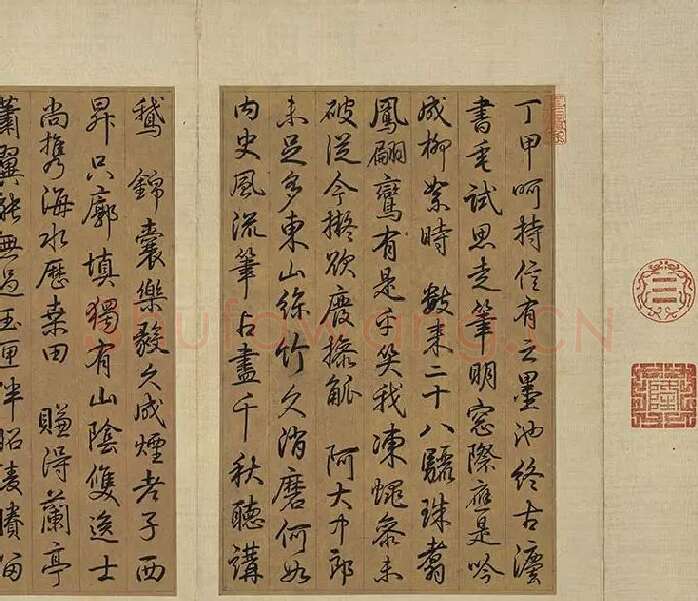 丁甲呵持信有之墨池終古
書垂試思走筆明窗際應是吟
成柳絮時 數來二十八驪珠翥
鳳翩鸞有是乎笑我凍蠅參未
破從今擬欲廢操觚 阿大中郎
未足多東山絲竹久消磨何如
內史風流筆占盡千秋聽講
鵝 錦囊樂毅久成煙老子西
昇只廓填獨有山陰雙逸士
尚攜海水歷桑田 賺得蘭亭
蕭翼能無過玉匣伴昭陵賸留
shufawang.CN
隆